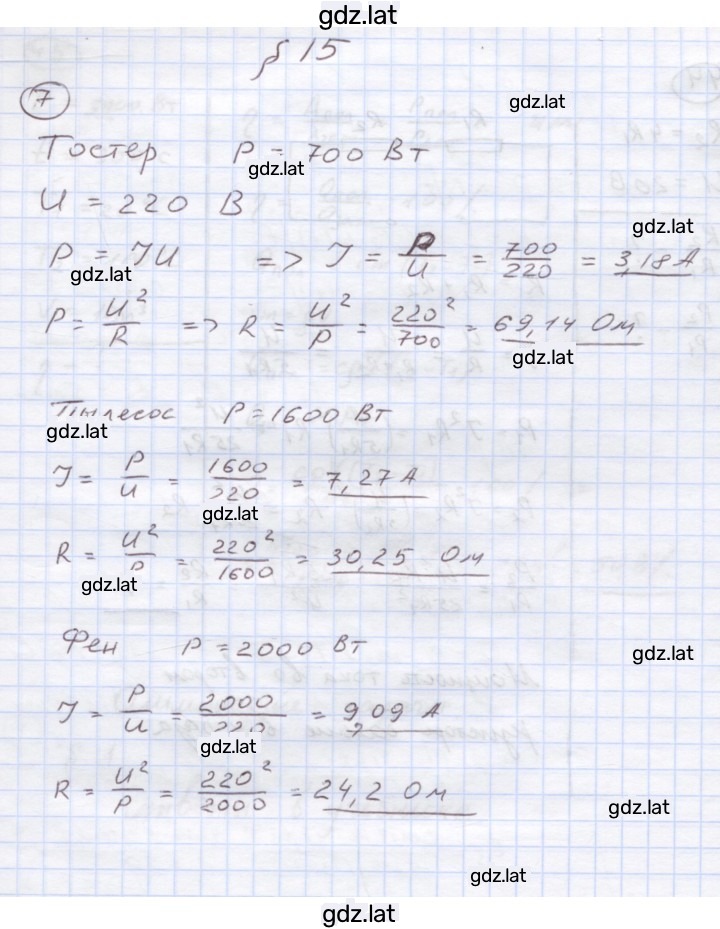 gdz.lat
§ 15
7
gdz.lat
Тостер P = 700 Вт
gdz.lat
U = 220 В
gdz.lat
P = IU => I = P/U = 700/220 = 3,18 А
gdz.lat
P = U²/R => R = U²/P = 220²/700 = 69,14 Ом
gdz.lat
Пылесос P = 1600 Вт
gdz.lat
I = P/U = 1600/220 = 7,27 А
gdz.lat
R = U²/P = 220²/1600 = 30,25 Ом
gdz.lat
Фен P = 2000 Вт
gdz.lat
I = P/U = 2000/220 = 9,09 А
gdz.lat
R = U²/P = 220²/2000 = 24,2 Ом
gdz.lat
gdz.lat
gdz.lat